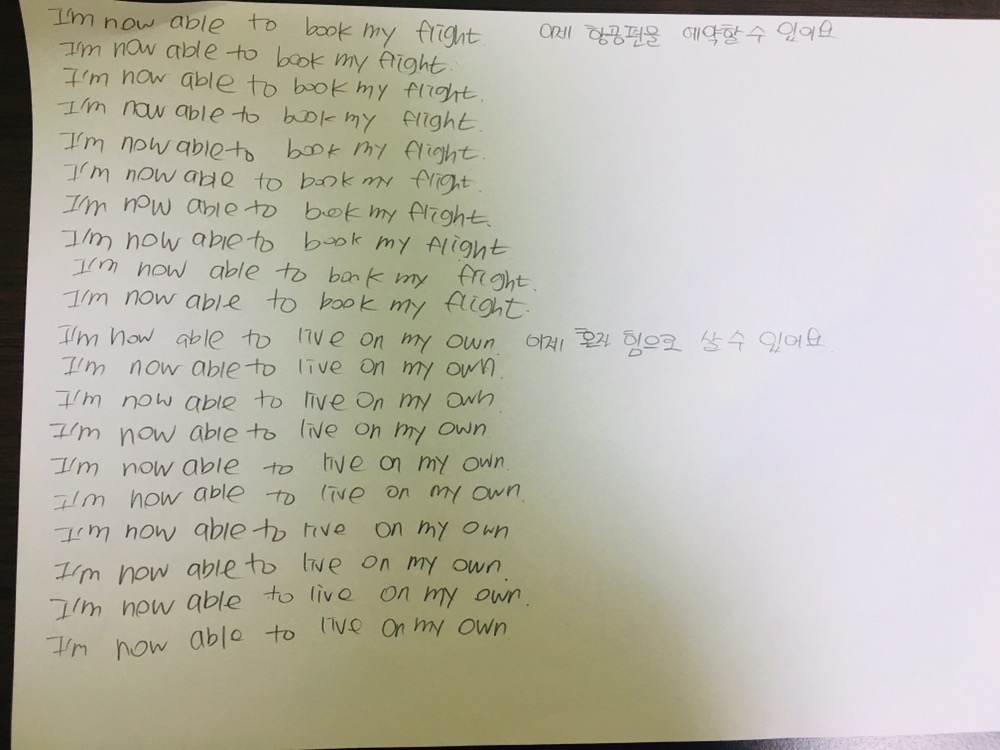 I'm now able to book my flight 이제 항공편을 예약할 수 있어요
I'm now able to book my flight.
I'm now able to book my flight.
I'm now able to book my flight.
I'm now able to book my flight.
I'm now able to book my flight.
I'm now able to book my flight.
I'm now able to book my flight
I'm now able to book my flight.
I'm now able to book my flight.
I'm now able to live on my own. 이제 혼자 힘으로 살 수 있어요.
I'm now able to live on my own.
I'm now able to live on my own.
I'm now able to live on my own.
I'm now able to live on my own.
I'm now able to live on my own.
I'm now able to live on my own
I'm now able to live on my own.
I'm now able to live on my own.
I'm now able to live on my own